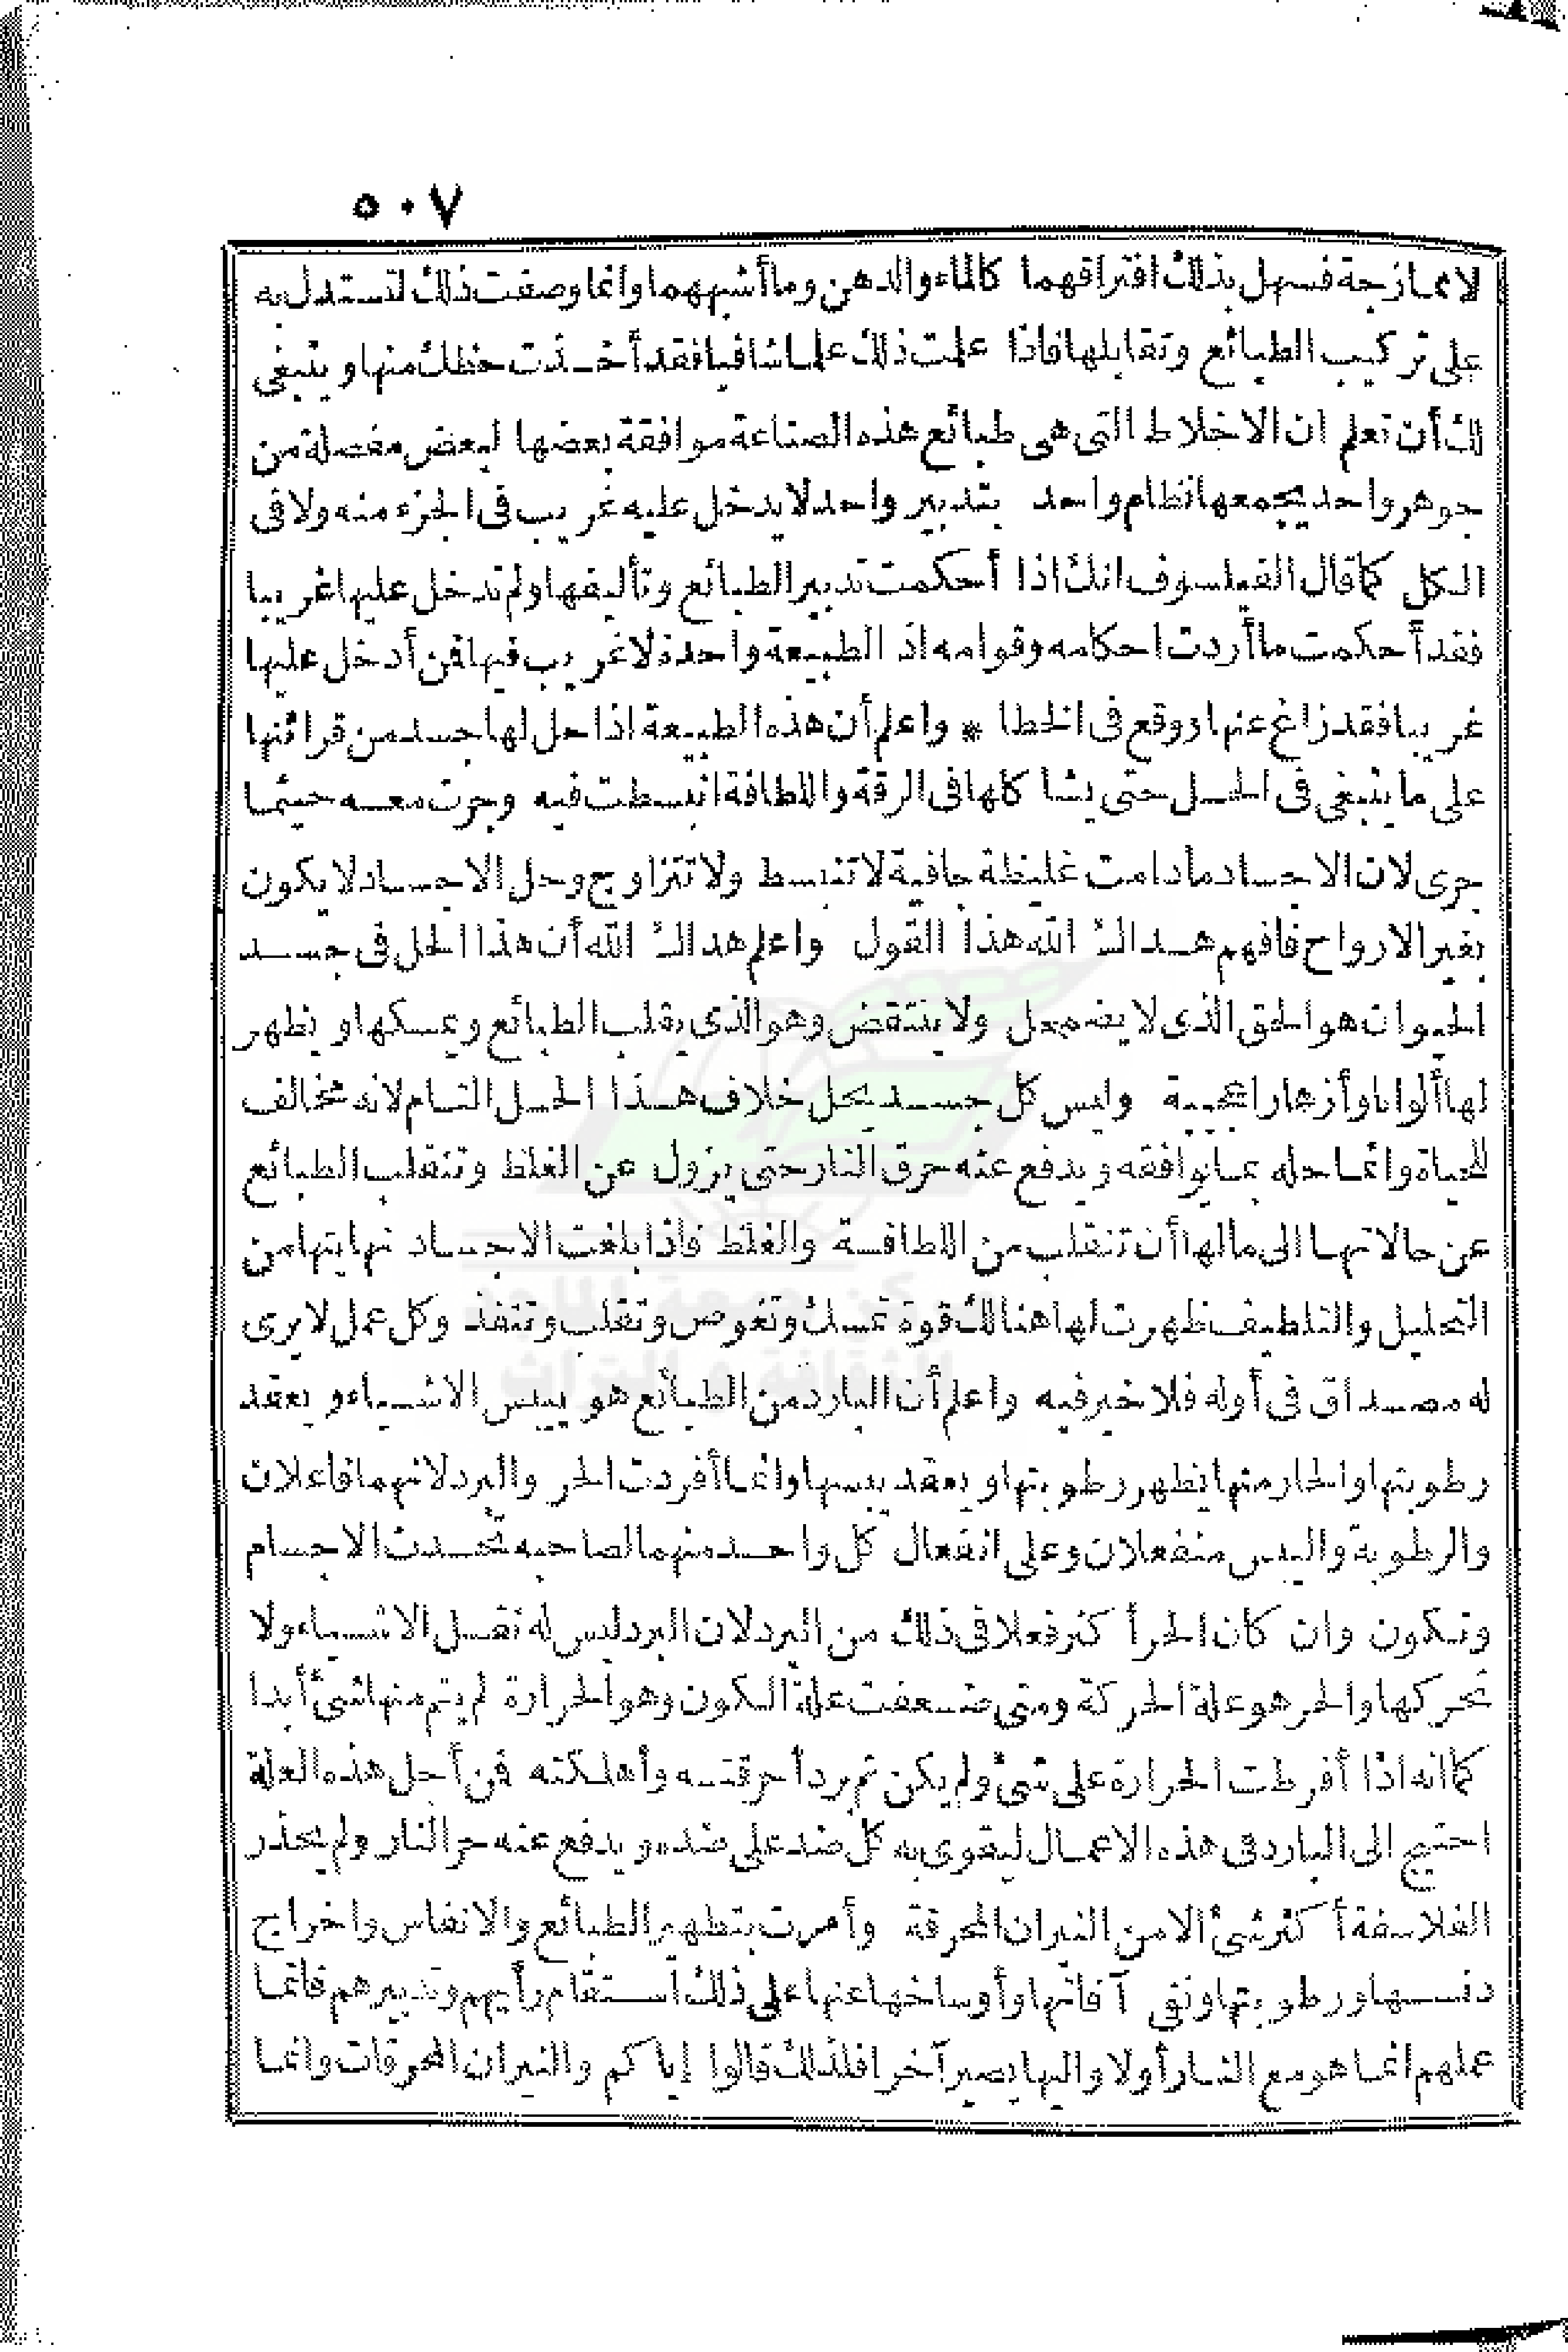 ٥٠٧
لا ممازجة فسهل بذلك افتراقهما كالماء والدهن وما أشبههما وانما وصفت ذلك لتستدل به
على تركيب الطبائع وتقابلها فاذا علمت ذلك علما شافيا فقد أخذت حظك منها وينبغى
لك أن تعلم ان الاخلاط التى هى طبائع هذه الصناعة موافقة بعضها لبعض مفصلة من
جوهر واحد يجمعها نظام واحد بتدبير واحد لا يدخل عليه غريب فى الجزء منه ولا فى
الكل كما قال الفيلسوف انك اذا أحكمت تدبير الطبائع وتأليفها ولم تدخل عليها غريبا
فقد أحكمت ما أردت احكامه وقوامه اذ الطبيعة واحدة لا غريب فيها فمن أدخل عليها
غريبا فقد زاغ عنها ووقع فى الخطا * واعلم أن هذه الطبيعة اذا حل لها جسد من قرائنها
على ما ينبغى فى الحل حتى يشاكلها فى الرقة واللطافة انبسطت فيه وجرت معه حيثما
جرى لان الاجساد مادامت غليظة جافية لا تنبسط ولا تتزاوج وحل الاجساد لا يكون
بغير الارواح فافهم هداك الله هذا القول واعلم هداك الله أن هذا الحل فى جسد
الحيوان هو الحق الذى لا يضمحل ولا ينتقض وهو الذى يقلب الطبائع ويمسكها ويظهر
لها ألوانا وأزهارا عجيبة وليس كل جسد يحل خلاف هذا الحل التام لانه مخالف
للحياة وانما حله بما يوافقه ويدفع عنه حرق النار حتى يزول عن الغلظ وتنقلب الطبائع
عن حالاتها الى مالها أن تنقلب من اللطافة والغلظ فاذا بلغت الاجساد نهايتها من
التحليل والتلطيف ظهرت لها هنالك قوة تمسك وتغوص وتقلب وتنفذ وكل عمل لا يرى
له مصداق فى أوله فلا خير فيه واعلم أن البارد من الطبائع هو ييبس الاشياء ويعقد
رطوبتها والحار منها يظهر رطوبتها ويعقد يبسها وانما أفردت الحر والبرد لانهما فاعلان
والرطوبة واليبس منفعلان وعلى انفعال كل واحد منهما لصاحبه تحدث الاجسام
وتكون وان كان الحر أكثر فعلا فى ذلك من البرد لان البرد ليس له نقل الاشياء ولا
تحركها والحر هو علة الحركة ومتى ضعفت علة الكون وهو الحرارة لم يتم منها شئ أبدا
كما انه اذا أفرطت الحرارة على شئ ولم يكن ثم برد أحرقته وأهلكته فمن أجل هذه العلة
احتيج الى البارد فى هذه الاعمال ليقوى به كل ضد على ضده ويدفع عنه حر النار ولم يحذر
الفلاسفة أكثر شئ الا من النيران المحرقة وأمرت بتطهير الطبائع والانفاس واخراج
دنسها ورطوبتها ونفى آفاتها وأوساخها عنها على ذلك استقام رأيهم وتدبيرهم فانما
عملهم انما هو مع النار أولا واليها يصير آخرا فلذلك قالوا إياكم والنيران المحرقات وانما
مركز جمعة الماجد
للثقافة و التراث